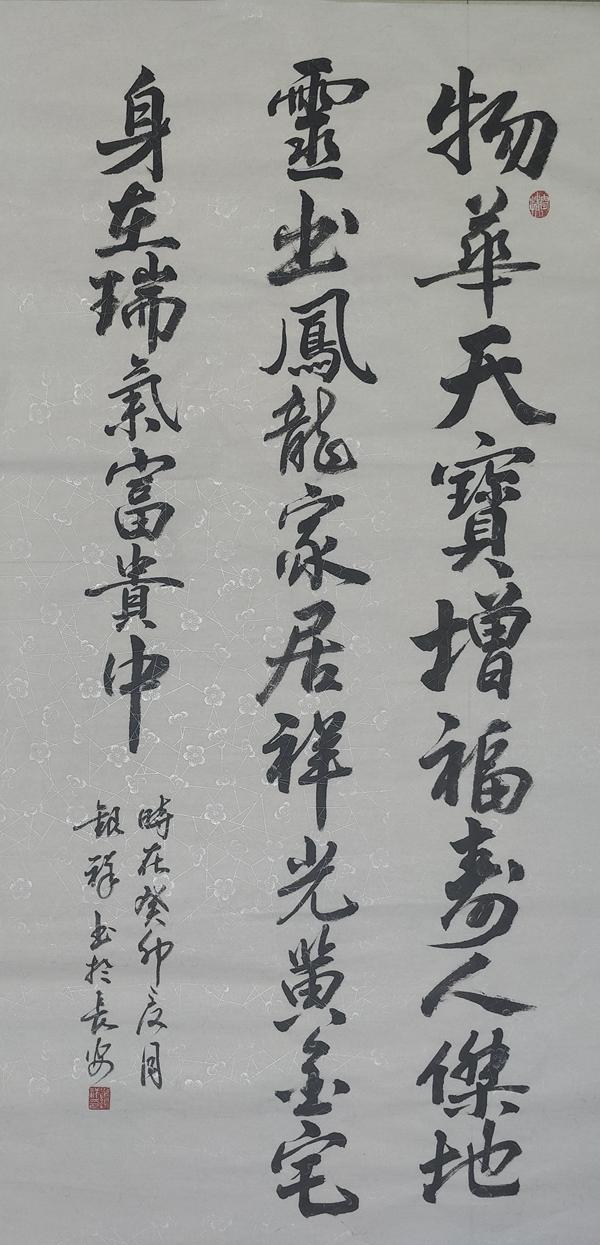 物華天寶增福壽人傑地
靈出鳳龍家居祥光黃金宅
身在瑞氣富貴中
時在癸卯夏月
銀祥書於長安